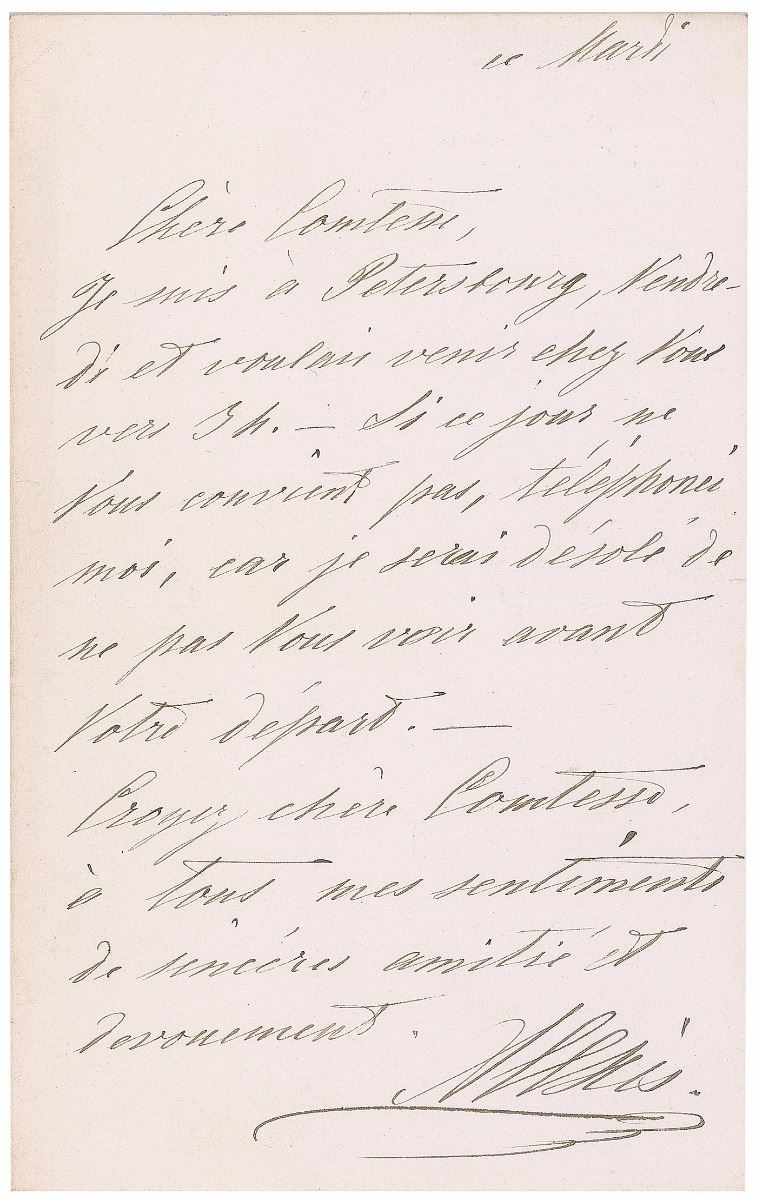 ce Mardi
Chère Comtesse,
Je suis à Petersbourg, Vendre-
di et voulais venir chez Vous
vers 3 h. — Si ce jour ne
Vous convient pas, téléphonez
moi, car je serais désolé de
ne pas Vous voir avant
Votre départ. —
Croyez chère Comtesse,
à tous mes sentiments
de sincéres amitié et
devouement.
Alexis.